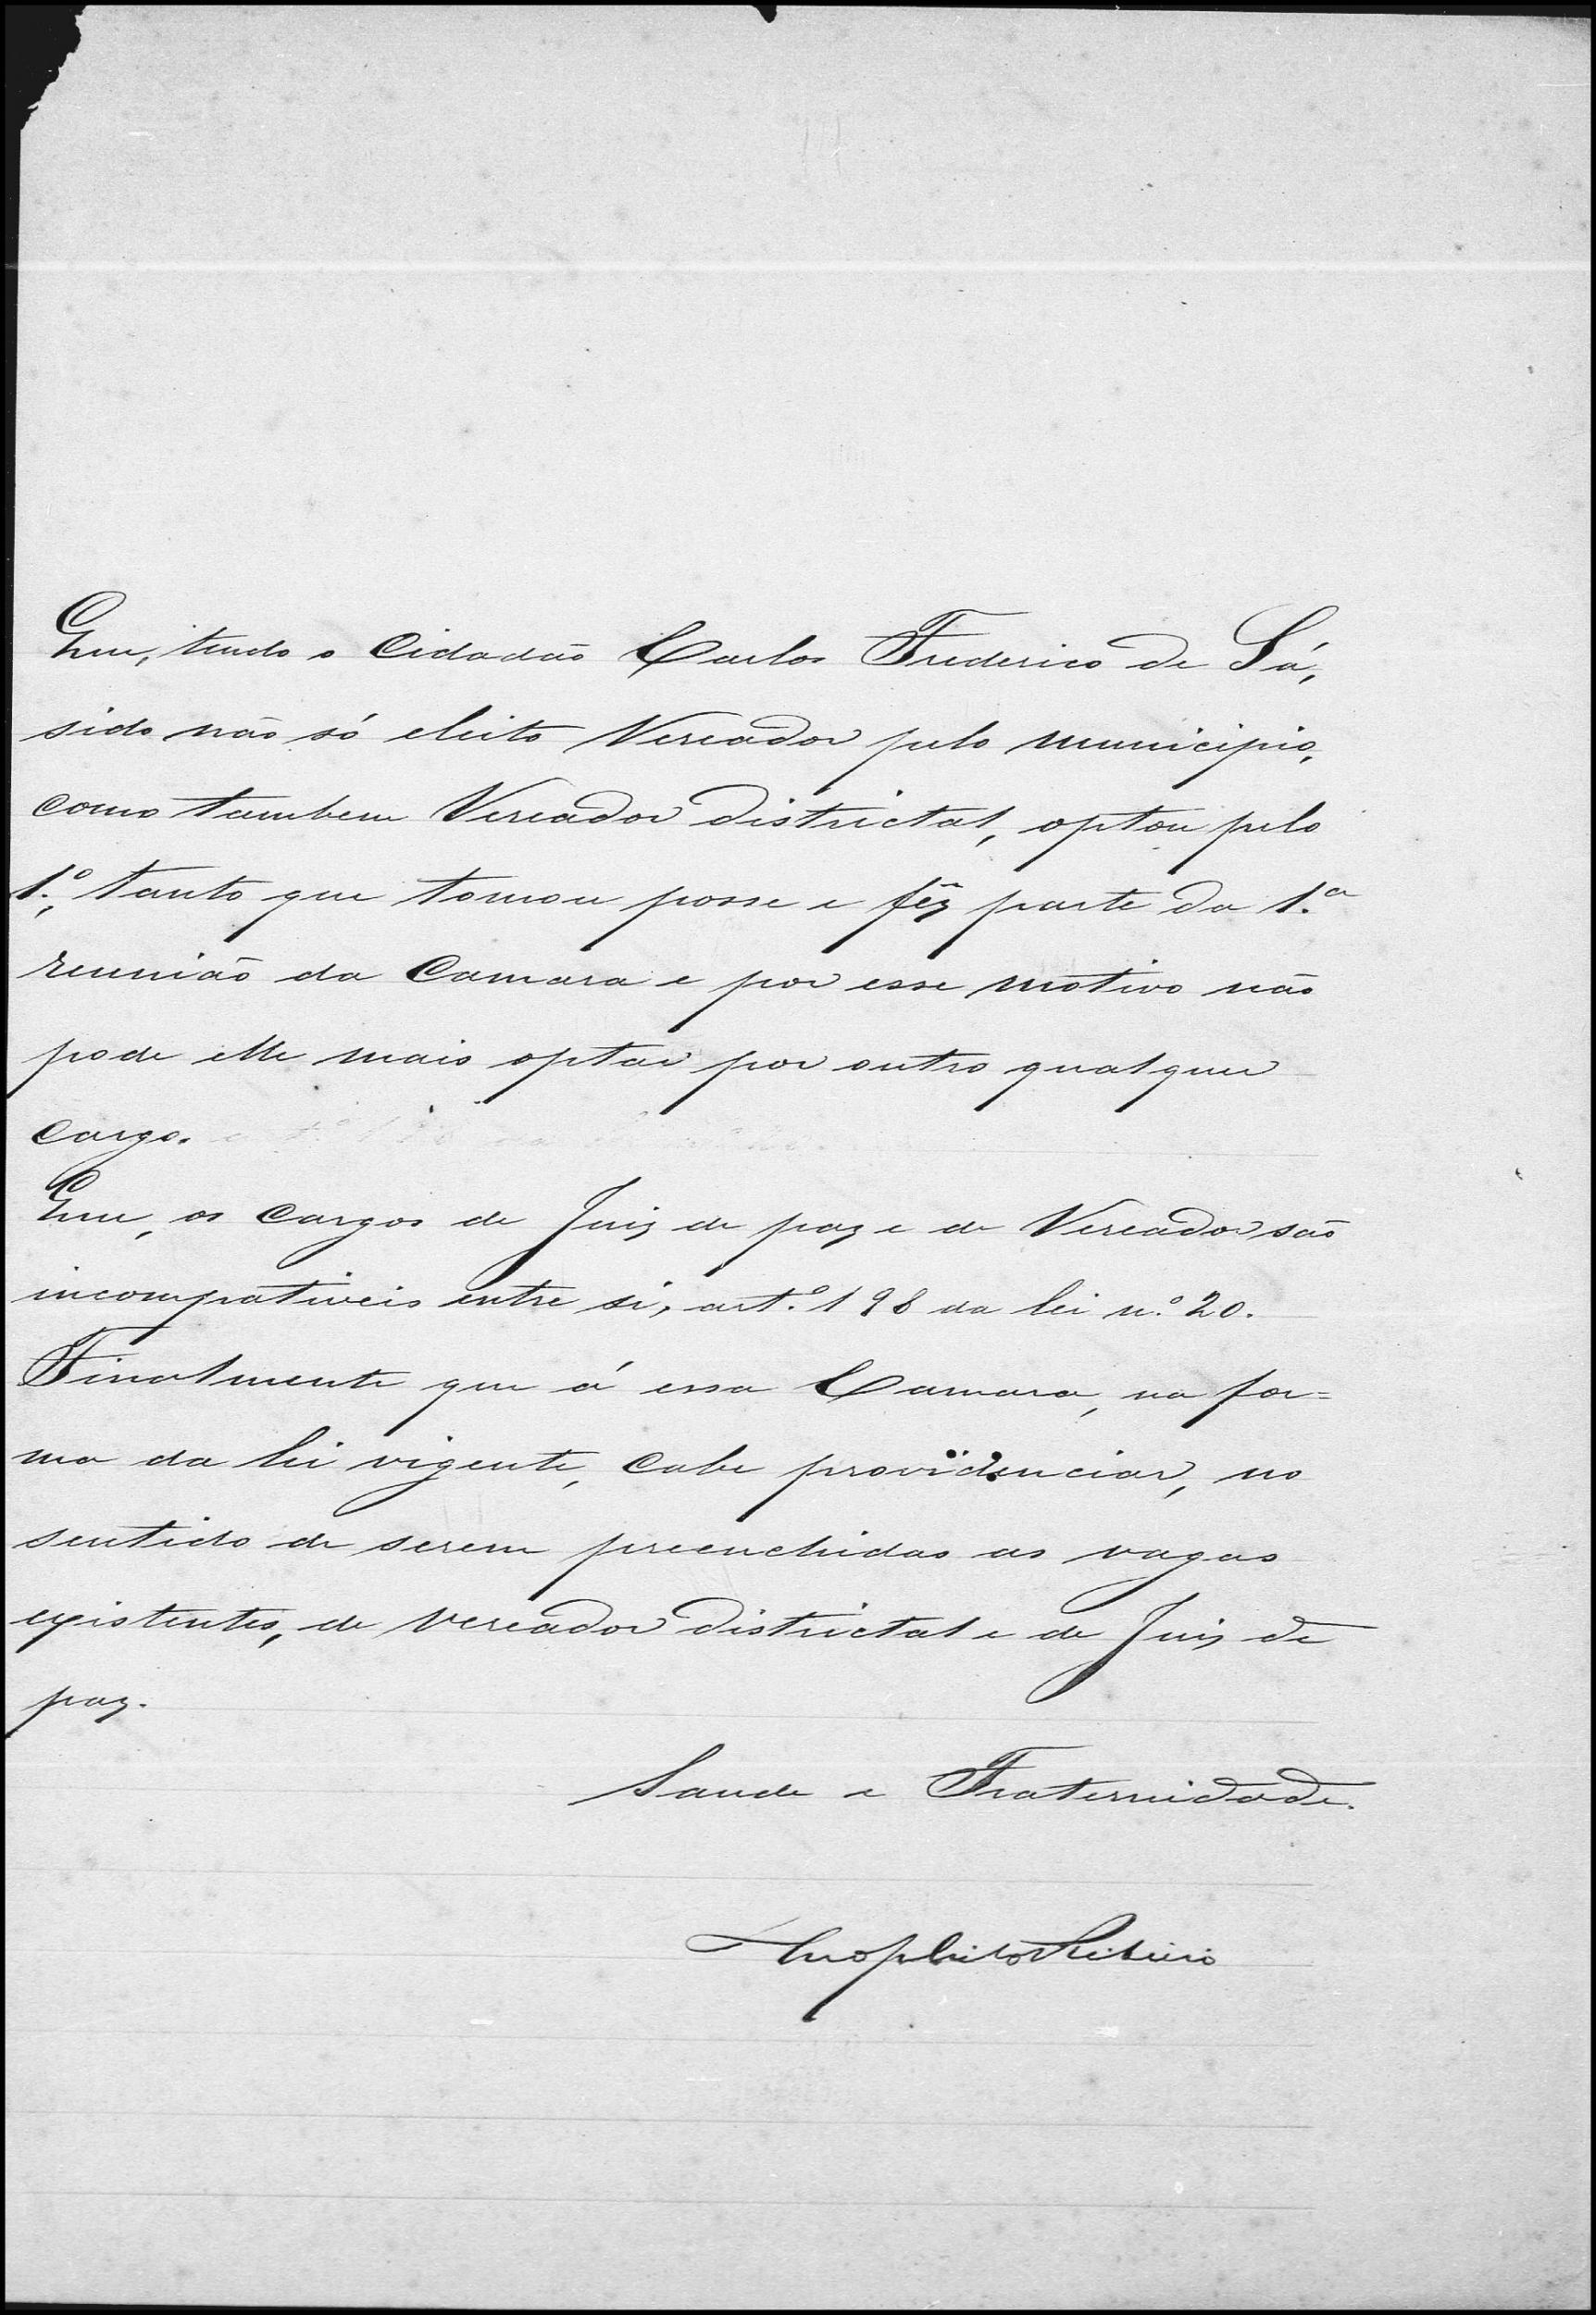 Que, tendo o Cidadão Carlos Frederico de Sá,
sido não só eleito Vereador pelo municipio,
como tambem Vereador districtal, optou pelo
1.º, tanto que tomou posse e fêz parte da 1.ª
reunião da Camara e por esse motivo não
pode elle mais optar por outro qualquer
cargo.
Que, os cargos de Juiz de paz e de Vereador são
incompativeis entre si, art.º 198 da lei n.º 20.
Finalmente que á essa Camara, na for=
ma da lei vigente, cabe providenciar, no
sentido de serem preenchidas as vagas
existentes, de vereador districtal e de Juiz de
paz.
Saude e Fraternidade.
Theophilo Ribeiro